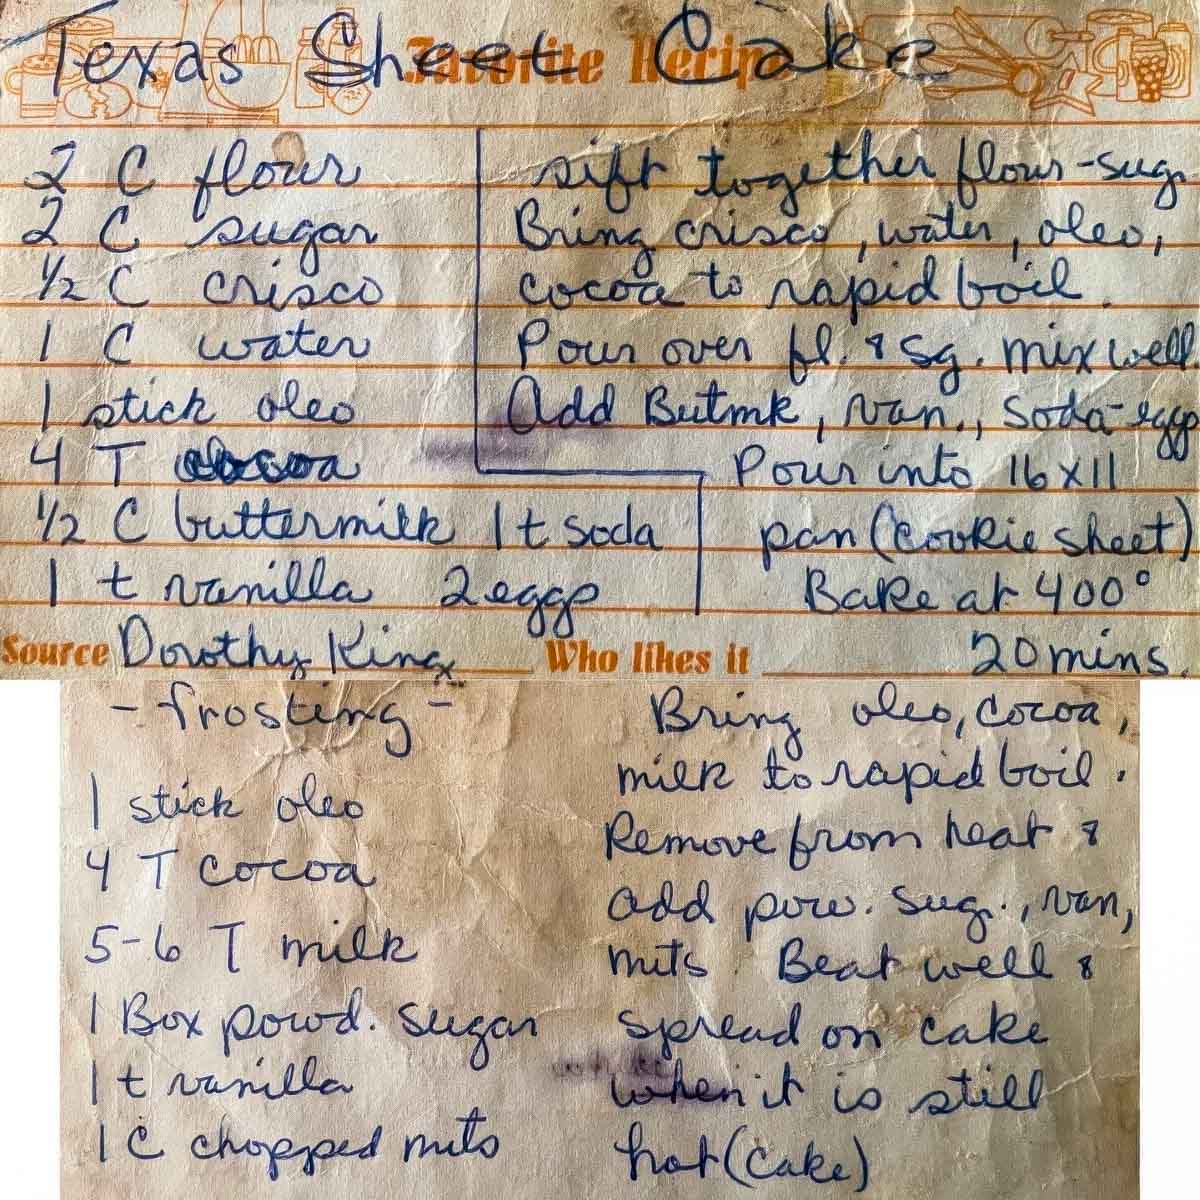 Favorite Recipe
Texas Sheet Cake
2 C flour
2 C sugar
1/2 C crisco
1 C water
1 stick oleo
4 T cocoa
1/2 C buttermilk 1 t soda
1 t vanilla 2 eggs
sift together flour-sug.
Bring crisco, water, oleo,
cocoa to rapid boil.
Pour over fl. & sg. mix well
Add Butmk, van., Soda-eggs
Pour into 16x11
pan (Cookie sheet)
Bake at 400°
20 mins.
Source Dorothy King
Who likes it
- frosting -
1 stick oleo
4 T cocoa
5-6 T milk
1 Box powd. sugar
1 t vanilla
1 C chopped nuts
Bring oleo, cocoa,
milk to rapid boil.
Remove from heat &
add pow. sug., van,
nuts Beat well &
spread on cake
when it is still
hot (cake)